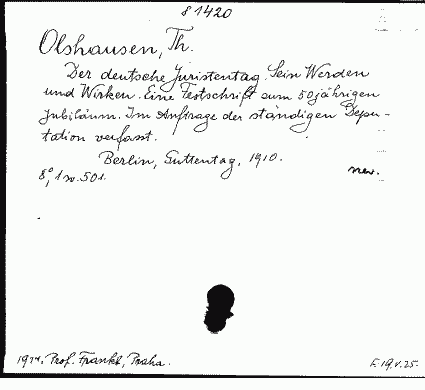 81420
Olshausen, Th.
Der deutsche Juristentag. Sein Werden
und Wirken. Eine Festschrift zum 50jährigen
Jubiläum. Im Auftrage der ständigen Depu-
tation verfasst.
Berlin, Guttentag, 1910.
8°,
nev.
Prof. Frankl, Praha.
F.19.V.25.